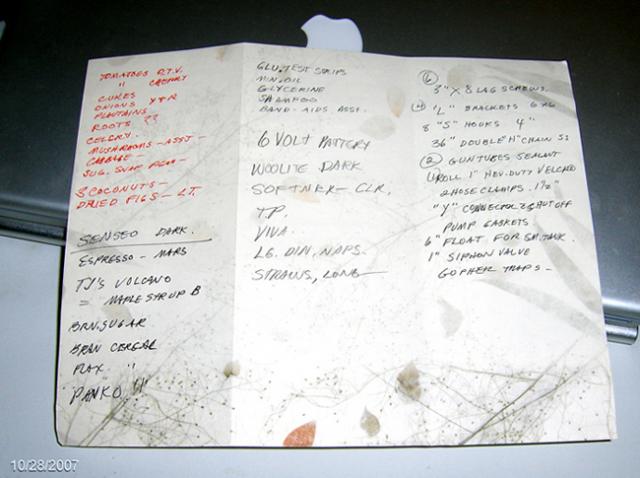 TOMATOES R.T.V.
" CHERRY
CUKES
ONIONS Y&R
PLANTAINS
ROOTS ??
CELERY.
MUSHROOMS - ASST -
CABBAGE -
SUG. SNAP PEAS -
3 COCONUTS -
DRIED FIGS - LT.
SENSEO DARK.
ESPRESSO - MARS
TJ'S VOLCANO
= MAPLE SYRUP B
BRN. SUGAR
BRAN CEREAL
FLAX "
PANKO "
GLU. TEST STRIPS
MIN. OIL
GLYCERINE
SHAMPOO
BAND-AIDS ASST.
6 VOLT BATTERY
WOOLITE DARK
SOFTNER - CLR.
T.P.
VIVA.
LG. DIN. NAPS.
STRAWS, LONG
6
3" X 8 LAG SCREWS.
"L" BRACKETS 6X6
8 "S" HOOKS 4"
36" DOUBLE "H" CHAIN
2 GUN TUBES SEALANT
1 ROLL 1" HEV. DUTY VELCRO
2 HOSE CLAMPS. 1 1/2"
"Y" CONNECTOR SHUT OFF
PUMP GASKETS
6" FLOAT FOR
1" SIPHON VALVE
GOPHER TRAPS -
10/28/2007